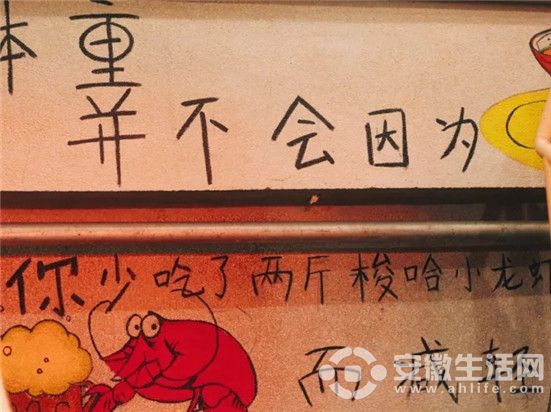 体重
并不会因为
你少吃了两斤梭哈小龙虾
而减轻
安徽生活网
www.ahlife.com